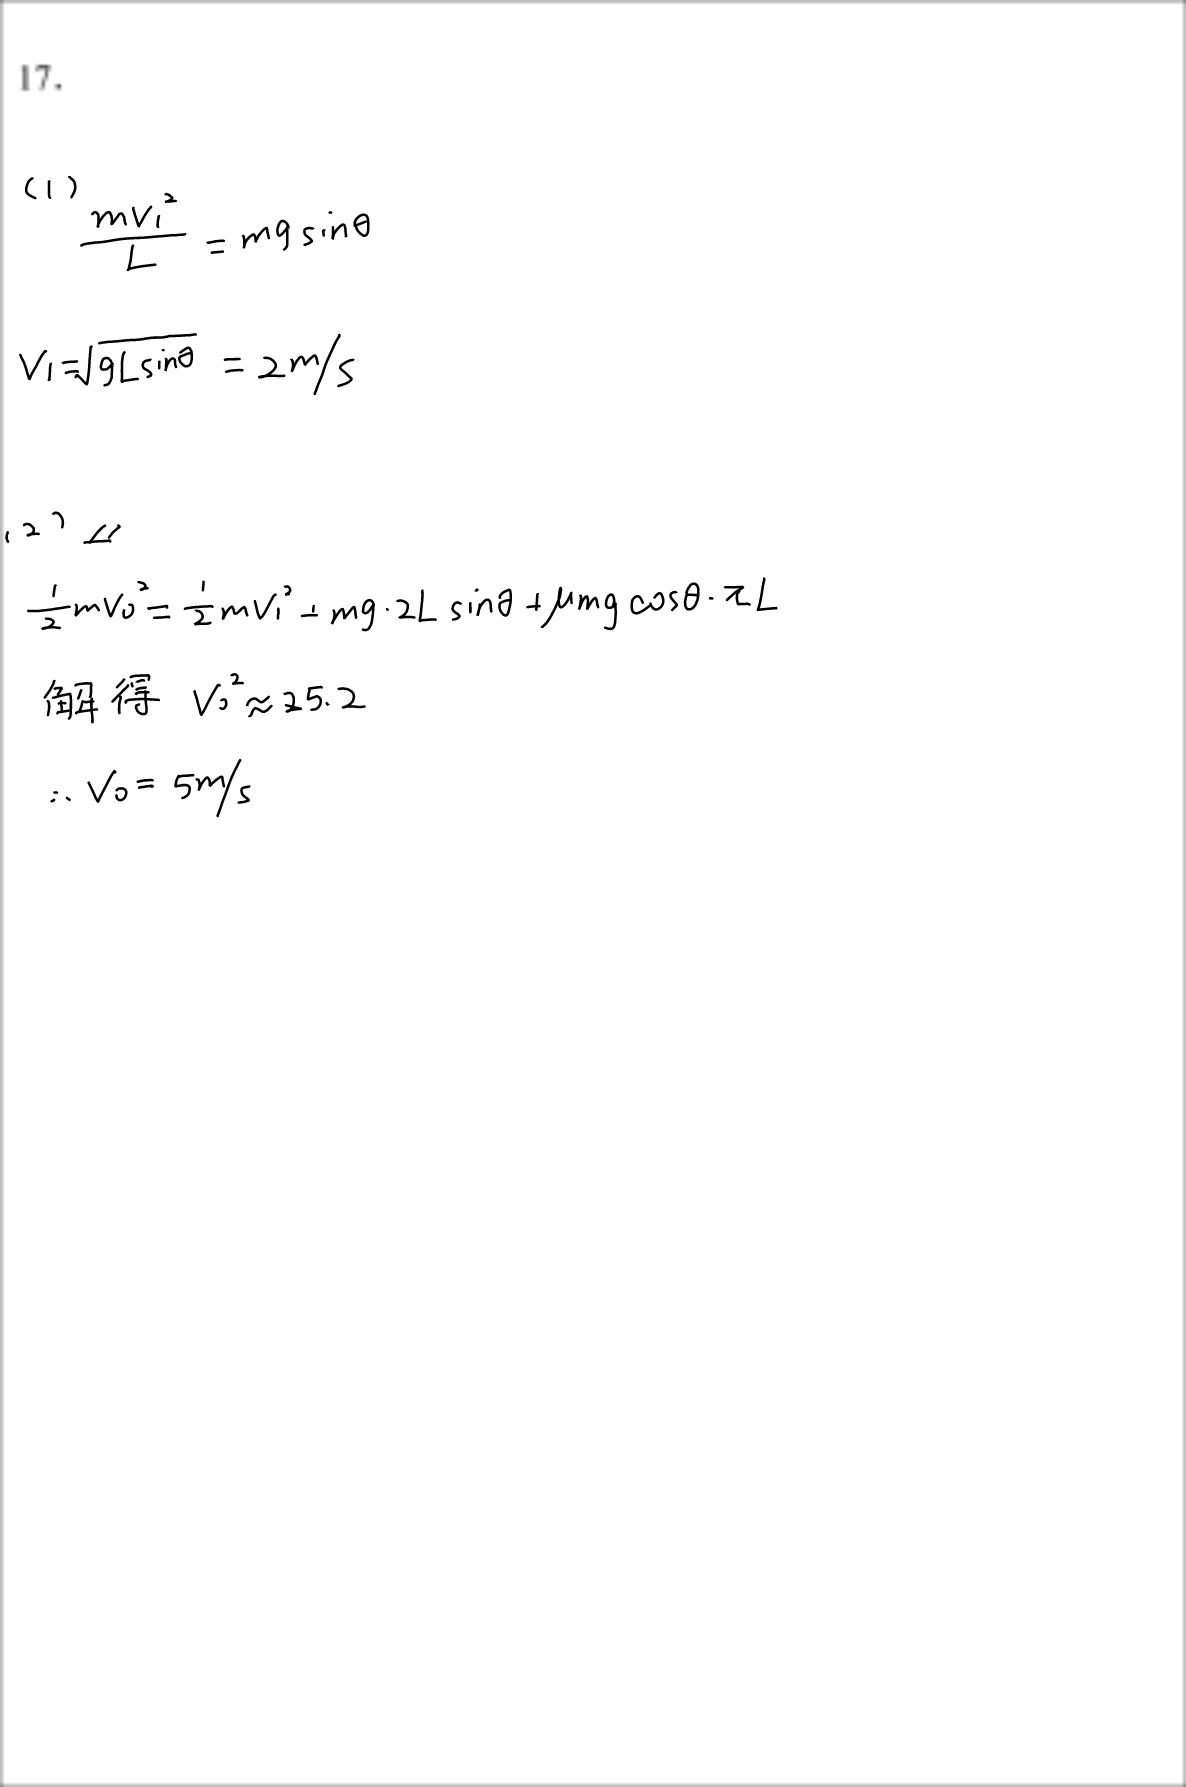 17.
(1)
mv₁²/L = mg sinθ
V₁=√gLsinθ = 2m/s
(2)
½mV₀²=½mV₁²+mg·2L sinθ+μmg cosθ·πL
解得 V₀²≈25.2
∴V₀= 5m/s